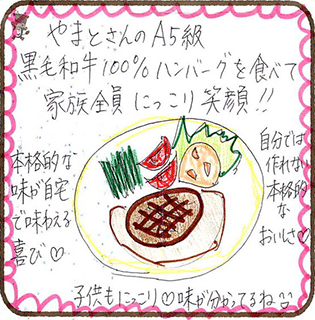 やまとさんのA5級
黒毛和牛100%ハンバーグを食べて
家族全員にっこり笑顔!!
本格的な
味が自宅
で味わえる
喜び♡
自分では
作れない
本格的
な
おいしさ♡
子供もにっこり♡味が分かってるね